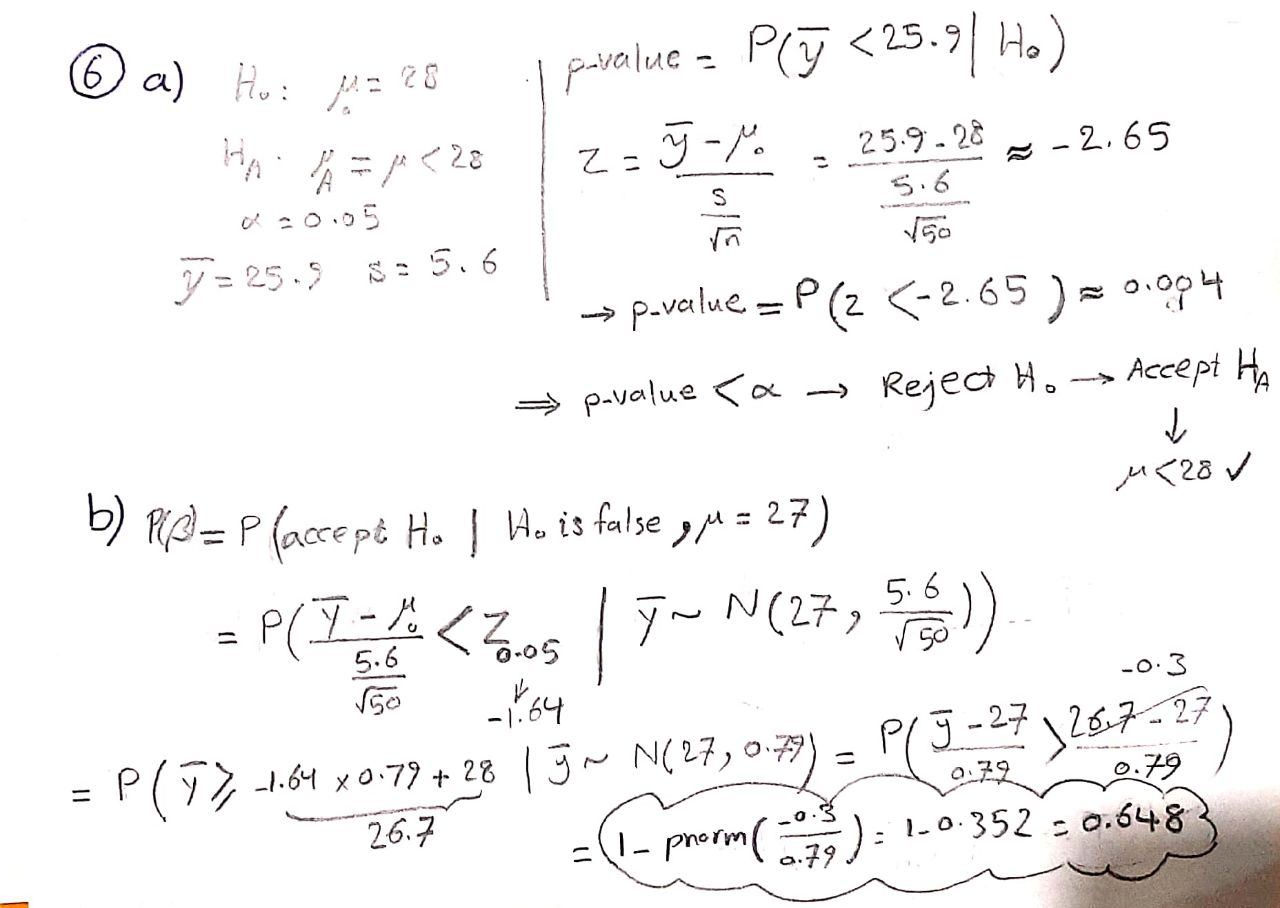 ⑥ a) H₀: μ₀ = 28
H_A: μ_A = μ < 28
α = 0.05
ȳ = 25.9 s = 5.6
p-value = P(ȳ < 25.9 | H₀)
z = (ȳ - μ₀)/(s/√n) = (25.9 - 28)/(5.6/√50) ≈ -2.65
→ p-value = P(z < -2.65) ≈ 0.004
⇒ p-value < α → Reject H₀ → Accept H_A
↓
μ < 28 ✓
b) P(β) = P(accept H₀ | H₀ is false, μ = 27)
= P((ȳ - μ₀)/(5.6/√50) < Z_0.05 | ȳ ~ N(27, 5.6/√50))
↓
-1.64
-0.3
= P(ȳ ≥ -1.64 × 0.79 + 28 | ȳ ~ N(27, 0.79)) = P((ȳ - 27)/0.79 > (26.7 - 27)/0.79)
26.7
= 1 - pnorm(-0.3/0.79) = 1 - 0.352 = 0.648